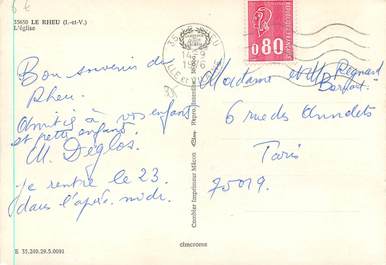 6 €
35650 LE RHEU (I.-et-V.)
L'église
Bon souvenir de
Rheu.
Amitiés à vos enfants
et petits enfants.
M. Deglos.
je rentre le 23
dans l'après-midi.
E 35.240.29.5.0091
Combier Imprimeur Mâcon
cimcrome
35
POSTES
RÉPUBLIQUE FRANÇAISE
0,80
Madame et M. Regnard
6 rue des Annelets
Paris
75019.